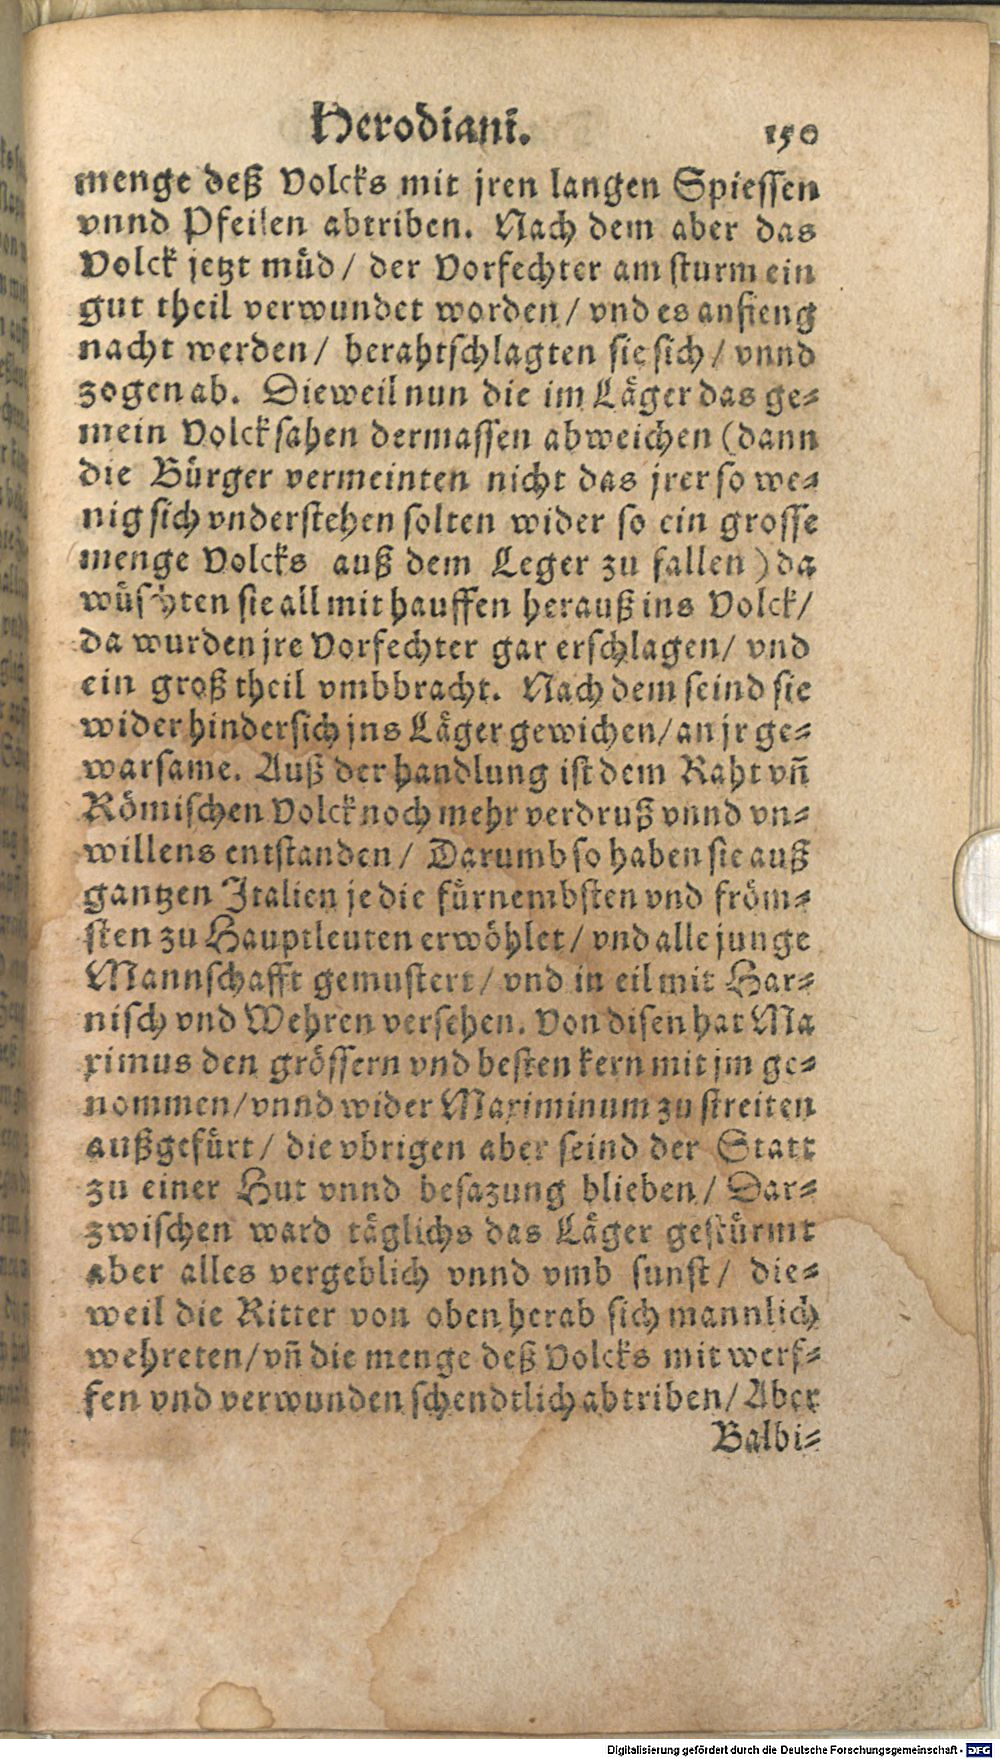 Herodiani. 150
menge deß Volcks mit jren langen Spiessen
vnnd Pfeilen abtriben. Nach dem aber das
Volck jetzt müd / der Vorfechter am sturm ein
gut theil verwundet worden / vnd es anfieng
nacht werden / berahtschlagten sie sich / vnnd
zogen ab. Dieweil nun die im Läger das ge-
mein Volck sahen dermassen abweichen (dann
die Bürger vermeinten nicht das jrer so we-
nig sich vnderstehen solten wider so ein grosse
menge Volcks auß dem Leger zu fallen) da
wüschten sie all mit hauffen herauß ins Volck /
da wurden jre Vorfechter gar erschlagen / vnd
ein groß theil vmbbracht. Nach dem seind sie
wider hindersich jns Läger gewichen / an jr ge-
warsame. Auß der handlung ist dem Raht vñ
Römischen Volck noch mehr verdruß vnnd vn-
willens entstanden / Darumb so haben sie auß
gantzen Italien je die fürnembsten vnd fröm-
sten zu Hauptleuten erwöhlet / vnd alle junge
Mannschafft gemustert / vnd in eil mit Har-
nisch vnd Wehren versehen. Von disen hat Ma
ximus den grössern vnd besten kern mit jm ge-
nommen / vnnd wider Maximinum zu streiten
außgefürt / die vbrigen aber seind der Statt
zu einer Hut vnnd besazung blieben / Dar-
zwischen ward täglichs das Läger gestürmt
aber alles vergeblich vnnd vmb sunst / die-
weil die Ritter von oben herab sich mannlich
wehreten / vñ die menge deß Volcks mit werf-
fen vnd verwunden schendtlich abtriben / Aber
Balbi-
Digitalisierung gefördert durch die Deutsche Forschungsgemeinschaft - DFG